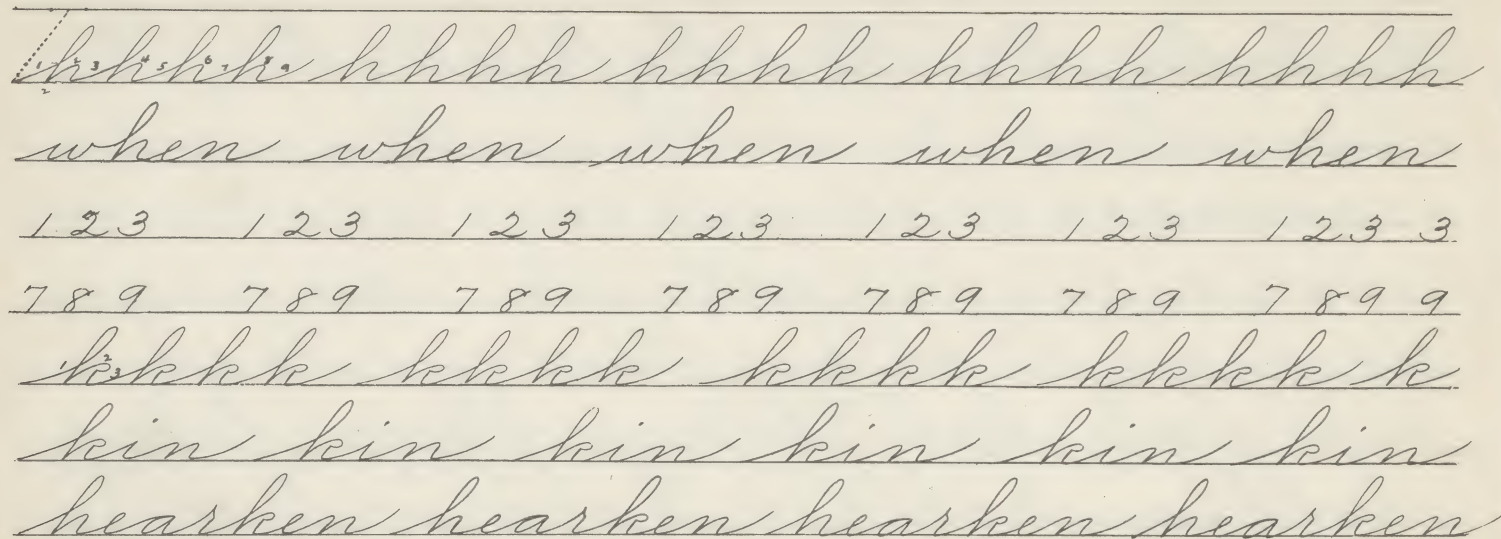 hhhh hhhh hhhh hhhh hhhh
when when when when when
1 2 3 1 2 3 1 2 3 1 2 3 1 2 3 1 2 3 1 2 3 3
7 8 9 7 8 9 7 8 9 7 8 9 7 8 9 7 8 9 7 8 9 9
kkkk kkkk kkkk kkkk k
kin kin kin kin kin kin
hearken hearken hearken hearken